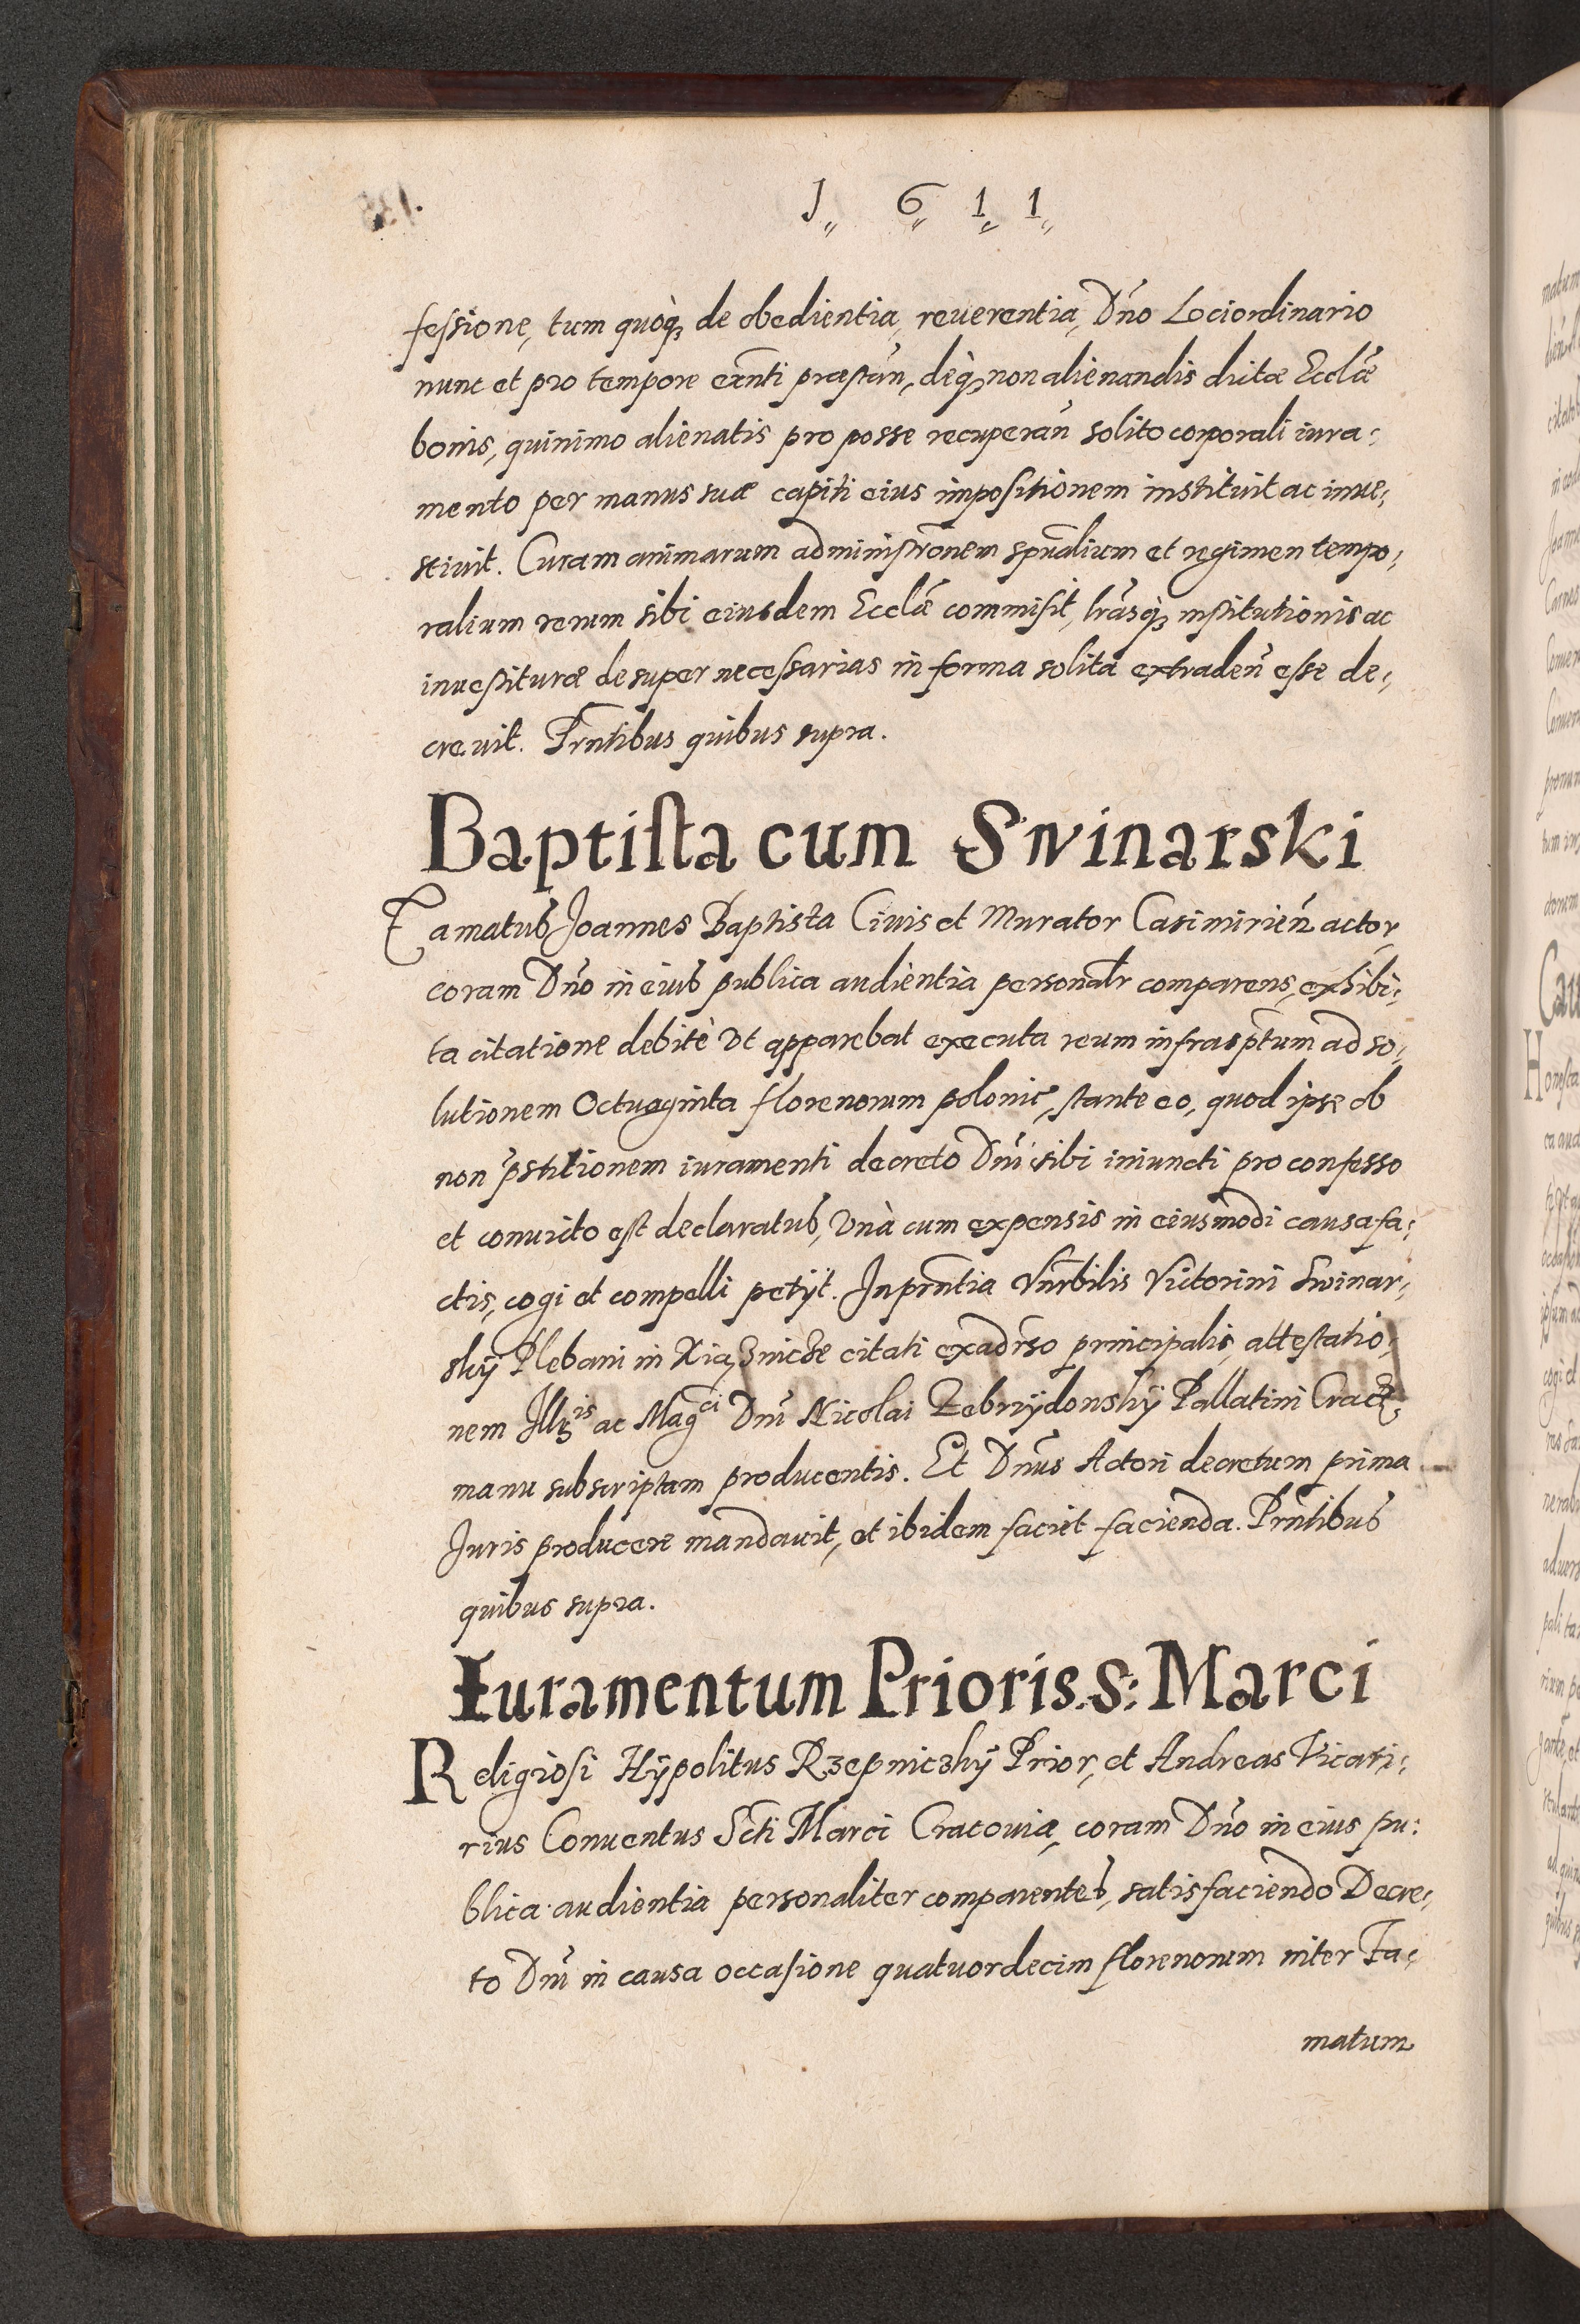 1 6 1 1
fessione, tum quoq̀ꝫ de obedientia, reuerentia, Dn̄o Lociordinario
nunc et pro tempore exn̄ti præstan̄, deq̀ꝫ non alienandis dictæ Eccl̄æ
bonis, quinimo alienatis pro posse recuperan̄ solito corporali iura-
mento per manus suæ capiti eius impositionem instituit ac inue-
stiuit. Curam animarum administrōnem spūalium et regimen tempo-
ralium rerum sibi eiusdem Eccl̄æ commisit, lr̄asq̀ꝫ institutionis ac
inuestituræ desuper necessarias in forma solita extraden̄ esse de-
creuit. Prn̄tibus quibus supra.
Baptista cum Swinarski
Famatus Joannes Baptista Ciuis et Murator Casimirien̄ actor
coram Dn̄o in eius publica audientia personalr̄ comparens, exhibi-
ta citatione debitè vt apparebat executa reum infrasp̄tum ad so-
lutionem Octuaginta florenorum polonic̄, stante eo, quod ipse ob
non p̄stitionem iuramenti decreto Dn̄i sibi iniuncti pro confesso
et conuicto est declaratus, vnà cum expensis in eiusmōdi causa fa-
ctis, cogi et compelli petÿt. In prn̄tia Vnr̄bilis Victorini Swinar-
skÿ Plebani in Xiąznicze citati ex adr̄so principalis, attestatio-
nem Illꝫis ac Magci Dn̄i Nicolai ZebrzÿdowskÿPallatini Crac̄
manu subscriptam producentis. Et Dn̄us Actori decretum prima
Juris producere mandauit, et ibidem faciet facienda. Prn̄tibus
quibus supra.
Iuramentum Prioris. S: Marci
Religiosi Hÿpolitus Rzepniczkÿ Prior, et Andreas Vicari-
rius Conuentus Scti Marci Cracouiæ, coram Dn̄o in eius pu:
blica audientia personaliter comparentes, satisfaciendo Decre-
to Dn̄i in causa occasione quatuordecim florenorum inter Fa-
matum